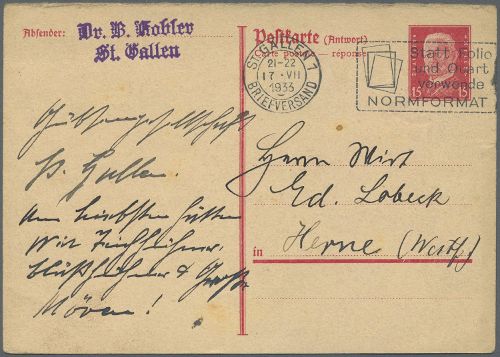 Absender:
Dr. B. Kobler
St. Gallen
Postkarte (Antwort)
Carte postale – réponse
ST. GALLEN 1
21-22
17·VII
1933
BRIEFVERSAND
Statt Folio
und Quart
verwende
NORMFORMAT
15 15
St. Gallen
Am liebsten hätten
wir
&
Möven!
Herrn Wirt
Ed. Lobeck
in Herne (Westf.)